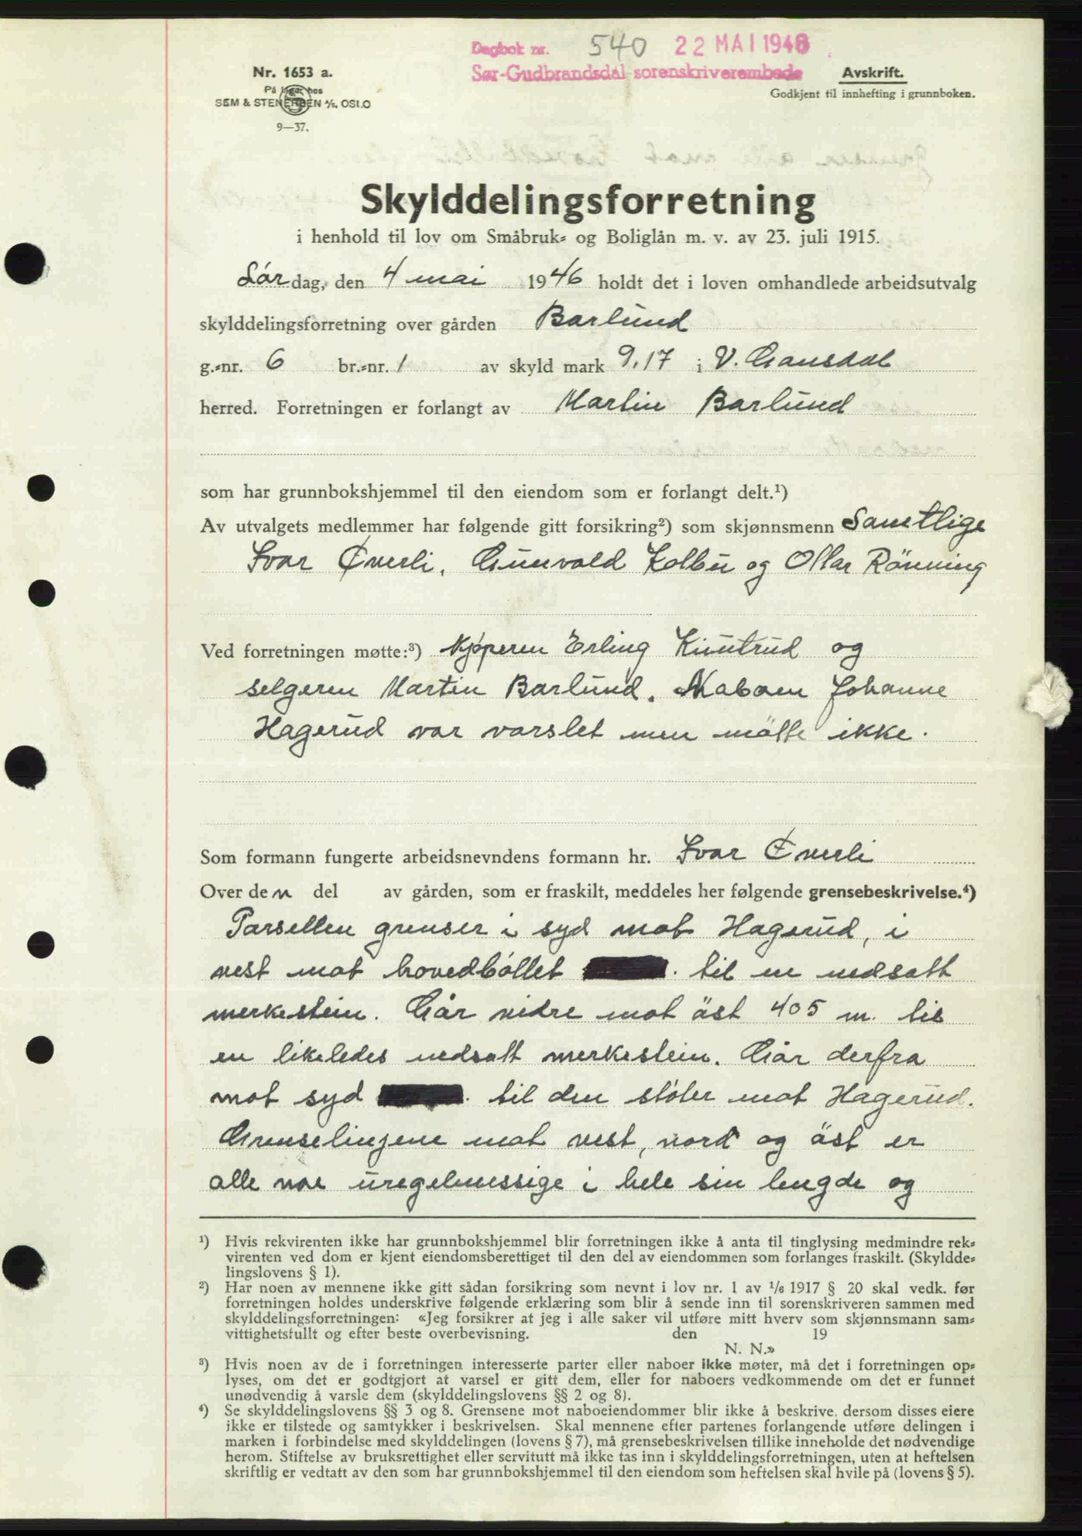 Dagbok nr. 540 22 MAI 1946
Sør-Gudbrandsdal sorenskriverembede
Nr. 1653 a.
På lager hos
SEM & STENERSEN A/S. OSLO
9—37.
Avskrift.
Godkjent til innhefting i grunnboken.
Skylddelingsforretning
i henhold til lov om Småbruk- og Boliglån m. v. av 23. juli 1915.
Lørdag, den 4 mai 1946 holdt det i loven omhandlede arbeidsutvalg
skylddelingsforretning over gården Barlund
g.-nr. 6 br.-nr. 1 av skyld mark 9,17 i V. Gausdal
herred. Forretningen er forlangt av Martin Barlund
som har grunnbokshjemmel til den eiendom som er forlangt delt.¹)
Av utvalgets medlemmer har følgende gitt forsikring²) som skjønnsmenn Samtlige
Ivar Øverli, Gunvald Kolbu og Ottar Rönning
Ved forretningen møtte:³) Kjøperen Erling Kinntrud og
selgeren Martin Barlund. Naboen Johanne
Hagerud var varslet men møtte ikke.
Som formann fungerte arbeidsnevndens formann hr. Ivar Øverli
Over den del av gården, som er fraskilt, meddeles her følgende grensebeskrivelse.⁴)
Parsellen grenser i syd mot Hagerud, i
vest mot hovedbøllet til en nedsatt
merkestein. Går vidre mot öst 405 m. til
en likeledes nedsatt merkestein. Går derfra
mot syd til den støter mot Hagerud.
Grenselinjene mot vest, nord og öst er
alle noe uregelmessige i hele sin lengde og
¹) Hvis rekvirenten ikke har grunnbokshjemmel blir forretningen ikke å anta til tinglysing medmindre rek-
virenten ved dom er kjent eiendomsberettiget til den del av eiendommen som forlanges fraskilt. (Skyldde-
lingslovens § 1).
²) Har noen av mennene ikke gitt sådan forsikring som nevnt i lov nr. 1 av ¹/₆ 1917 § 20 skal vedk. før
forretningen holdes underskrive følgende erklæring som blir å sende inn til sorenskriveren sammen med
skylddelingsforretningen: «Jeg forsikrer at jeg i alle saker vil utføre mitt hverv som skjønnsmann sam-
vittighetsfullt og efter beste overbevisning. den 19
N. N.»
³) Hvis noen av de i forretningen interesserte parter eller naboer ikke møter, må det i forretningen op-
lyses, om det er godtgjort at varsel er gitt dem, eller for naboers vedkommende om det er funnet
unødvendig å varsle dem (skylddelingslovens §§ 2 og 8).
⁴) Se skylddelingslovens §§ 3 og 8. Grensene mot naboeiendommer blir ikke å beskrive, dersom disses eiere
ikke er tilstede og samtykker i beskrivelsen. Skal mennene efter partenes forlangende utføre delingen i
marken i forbindelse med skylddelingen (lovens § 7), må grensebeskrivelsen tillike inneholde det nødvendige
herom. Stiftelse av bruksrettighet eller servitutt må ikke tas inn i skylddelingsforretningen, uten at heftelsen
skriftlig er vedtatt av den som har grunnbokshjemmel til den eiendom som heftelsen skal hvile på (lovens § 5).